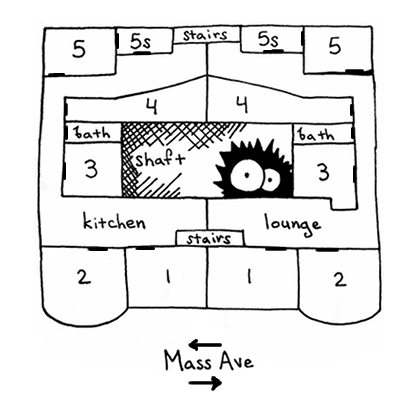 stairs
5 5s 5s 5
4 4
bath bath
shaft
3 3
kitchen lounge
stairs
2 1 1 2
Mass Ave